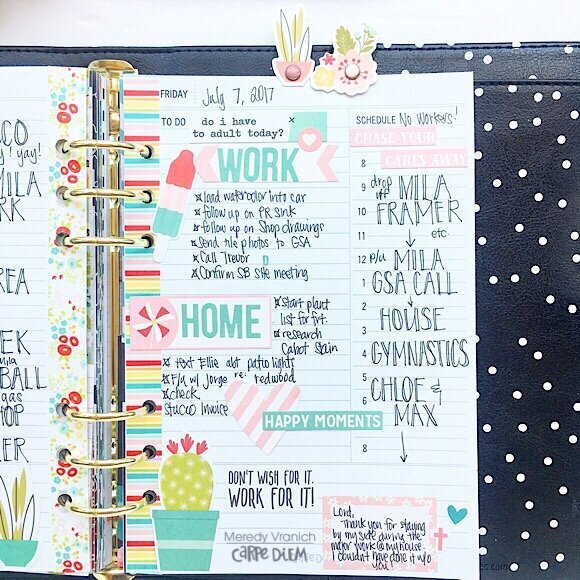 CO
y! yay!
MILA
RK
REA
EEK
mila
BALL
gas
HOP
LER
FRIDAY July 7, 2017
TO DO do i have
to adult today?
WORK
load watercolor into car
follow up on PR sink
follow up on Shop drawings
Send tile photos to GSA
Call Trevor
Confirm SB site meeting
HOME
start plant
list for frt.
research
Cabot Stain
text Ellie abt patio lights
F/u w/ Jorge re: redwood
check
Stucco Invoice
HAPPY MOMENTS
DON'T WISH FOR IT.
WORK FOR IT!
Meredy Vranich
CARPE DIEM
SCHEDULE No Workers!
CHASE YOUR
8 CARES AWAY
9 drop off MILA
10 FRAMER
11 etc.
12 p/u MILA
1 GSA CALL
2
3 HOUSE
4 GYMNASTICS
5 CHLOE &
6 MAX
8
Lord,
Thank you for staying
by my side during the
major work @ my house.
I couldn't have done it w/o
you!